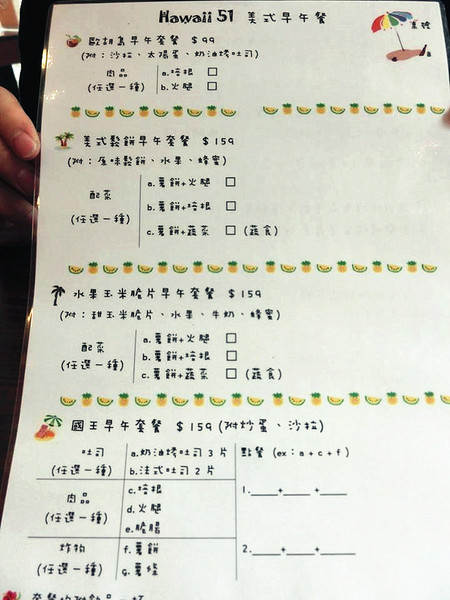 Hawaii 51 美式早午餐
桌號
歐胡島早午套餐 $99
(附：沙拉、太陽蛋、奶油烤吐司)
肉品
(任選一種)
a.培根 □
b.火腿 □
美式鬆餅早午套餐 $159
(附：原味鬆餅、水果、蜂蜜)
配菜
(任選一種)
a.薯餅+火腿 □
b.薯餅+培根 □
c.薯餅+蔬菜 □ (蔬食)
水果玉米脆片早午套餐 $159
(附：甜玉米脆片、水果、牛奶、蜂蜜)
配菜
(任選一種)
a.薯餅+火腿 □
b.薯餅+培根 □
c.薯餅+蔬菜 □ (蔬食)
國王早午套餐 $159 (附炒蛋、沙拉)
吐司
(任選一種)
a.奶油烤吐司 3 片
b.法式吐司 2 片
點餐 (ex：a + c + f )
肉品
(任選一種)
c.培根
d.火腿
e.脆腸
1.____+____+____
炸物
(任選一種)
f.薯餅
g.薯條
2.____+____+____